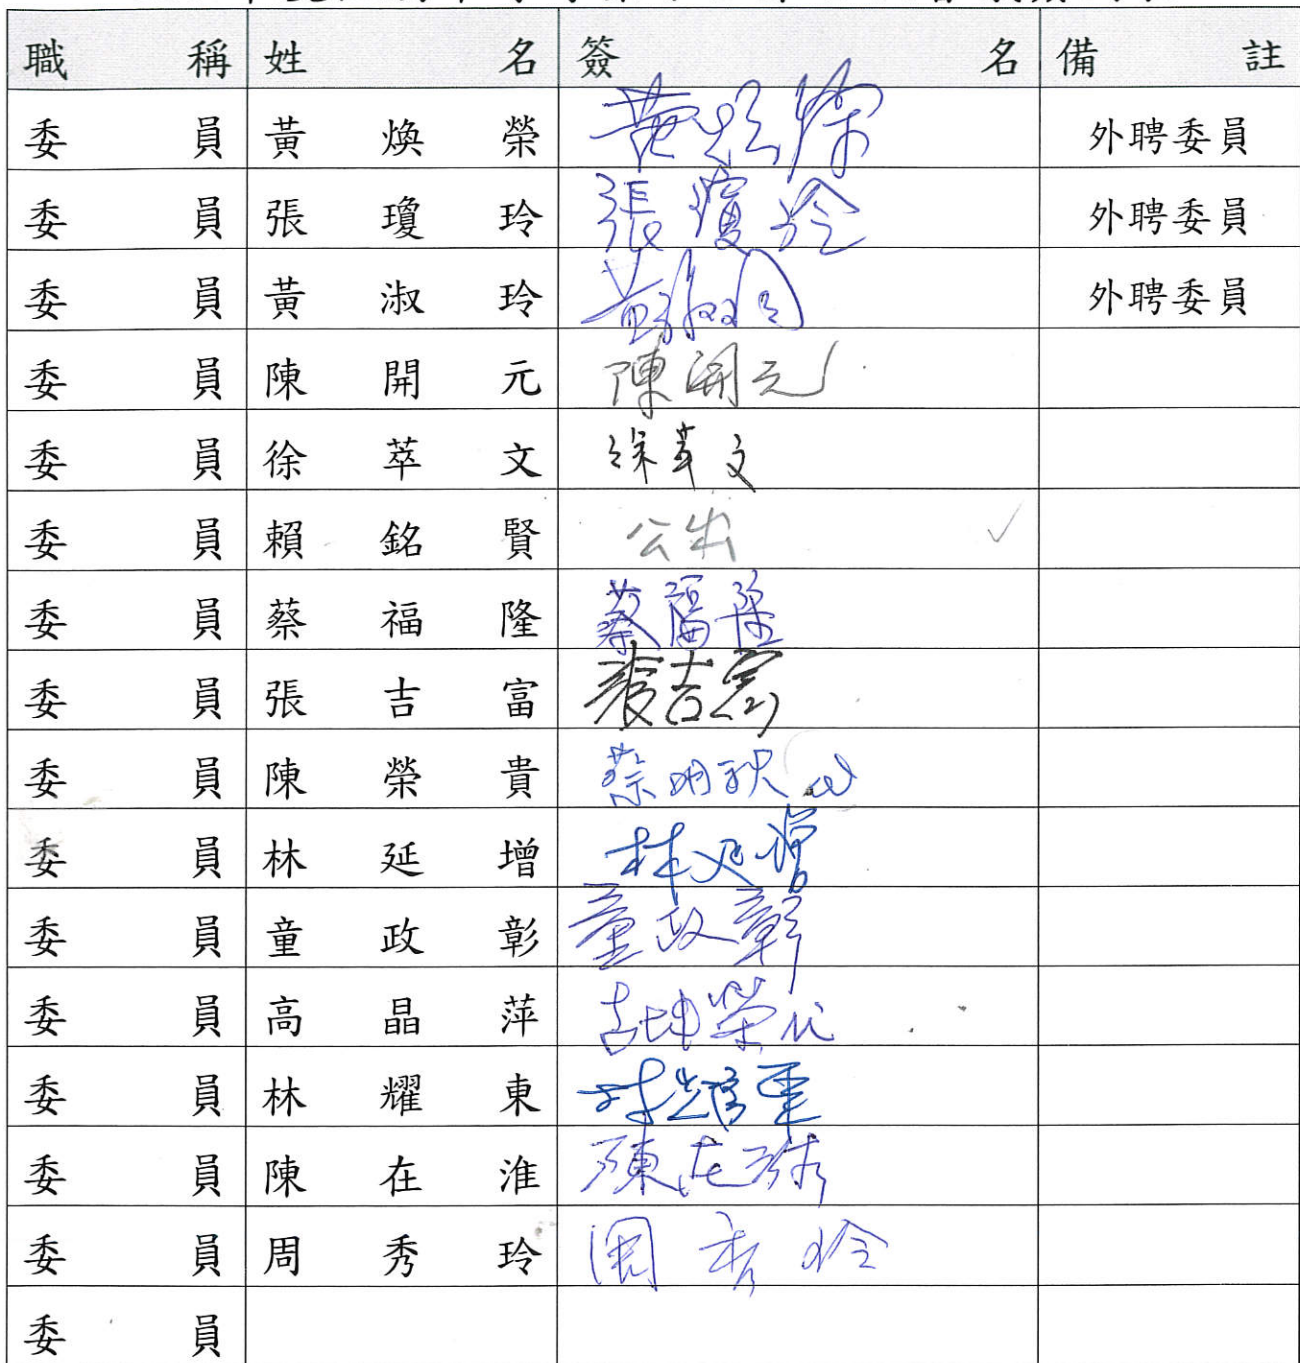 職稱 姓名 簽名 備註
委員 黃煥榮 黃煥榮 外聘委員
委員 張瓊玲 張瓊玲 外聘委員
委員 黃淑玲 黃淑玲 外聘委員
委員 陳開元 陳開元
委員 徐萃文 徐萃文
委員 賴銘賢 公出 ✓
委員 蔡福隆 蔡福隆
委員 張吉富 張吉富
委員 陳榮貴 蔡明秋 代
委員 林延增 林延增
委員 童政彰 童政彰
委員 高晶萍 古坤榮代
委員 林耀東 林耀東
委員 陳在淮
委員 周秀玲 周秀玲
委員